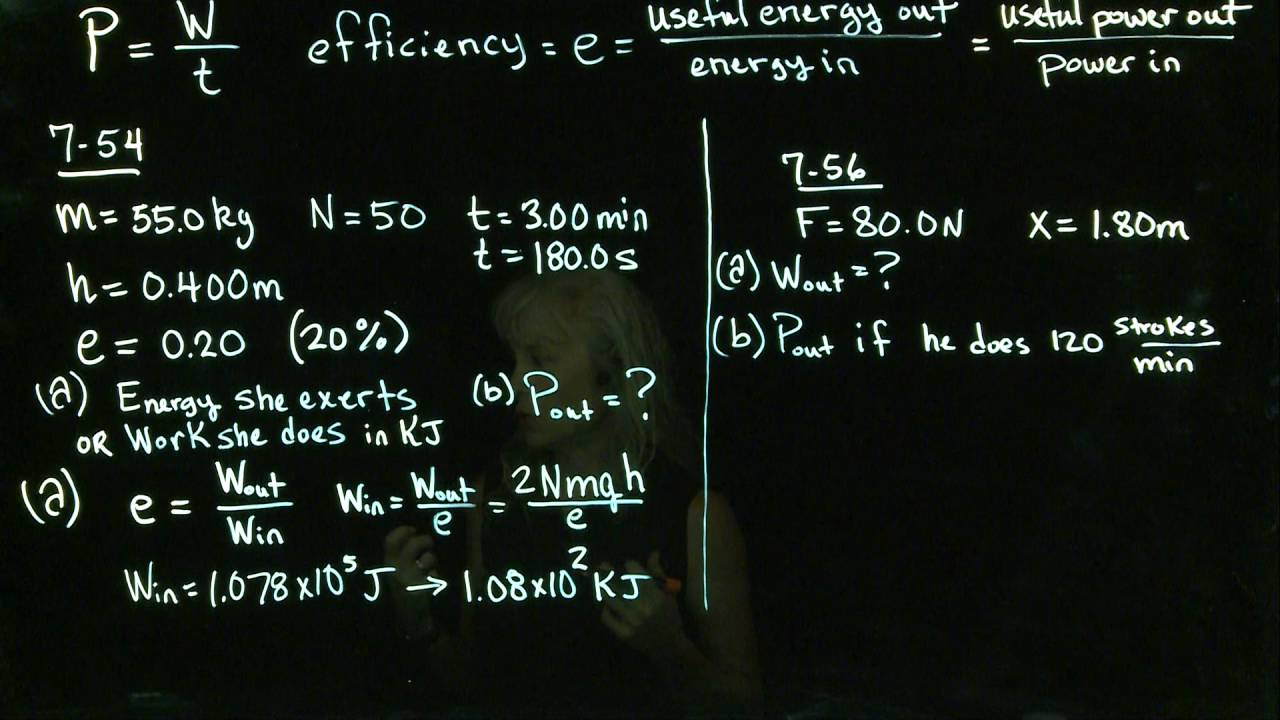 P = W/t   efficiency = e = useful energy out / energy in = useful power out / power in
7-54
m = 55.0 kg   N = 50   t = 3.00 min
t = 180.0 s
h = 0.400 m
e = 0.20 (20%)
(a) Energy she exerts
OR Work she does in KJ
(b) Pout = ?
(a) e = Wout/Win   Win = Wout/e = 2Nmgh/e
Win = 1.078 x 10^5 J → 1.08 x 10^2 KJ
7-56
F = 80.0 N   X = 1.80 m
(a) Wout = ?
(b) Pout if he does 120 strokes/min